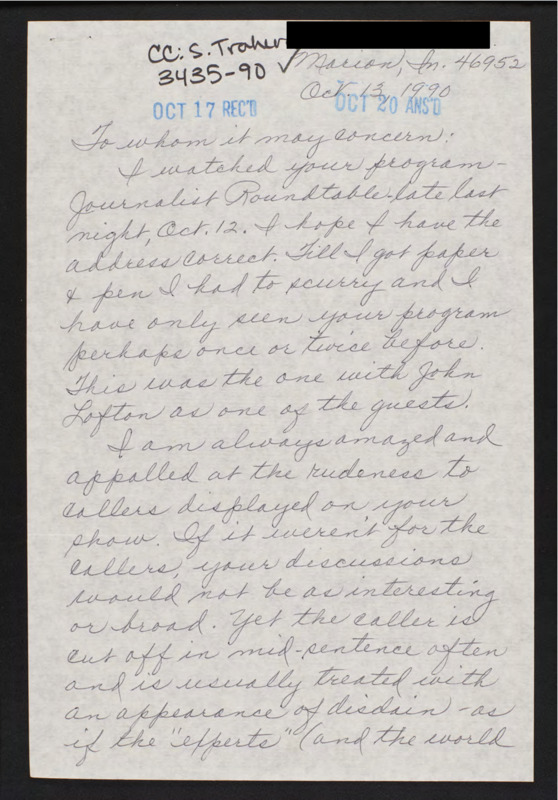 CC: S. Traher
3435-90 ✓
Marion, In. 46952
Oct. 13, 1990
OCT 17 REC'D
OCT 20 ANS'D
To whom it may concern:
I watched your program -
Journalist Roundtable - late last
night, Oct. 12. I hope I have the
address correct. Till I got paper
& pen I had to scurry and I
have only seen your program
perhaps once or twice before.
This was the one with John
Lofton as one of the guests.
I am always amazed and
appalled at the rudeness to
callers displayed on your
show. If it weren't for the
callers, your discussions
would not be as interesting
or broad. Yet the caller is
cut off in mid-sentence often
and is usually treated with
an appearance of disdain - as
if the "experts" (and the world